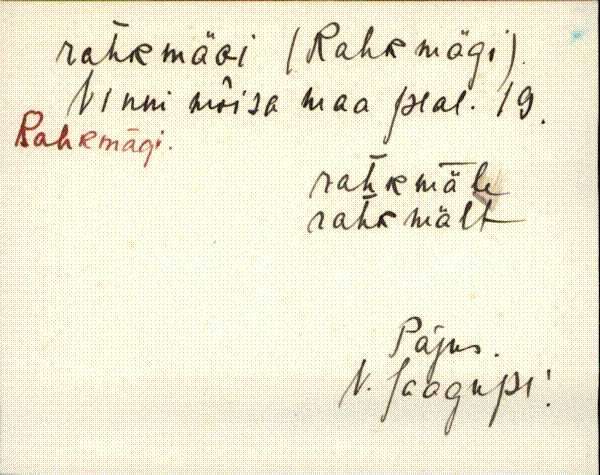 rah̄kmäɢi (Rahkmägi).
Vinni mõisa maa peal. 19.
Rahkmägi.
rah̄kmǟle
rah̄kmält
Pajus.
V. Jaagupi.